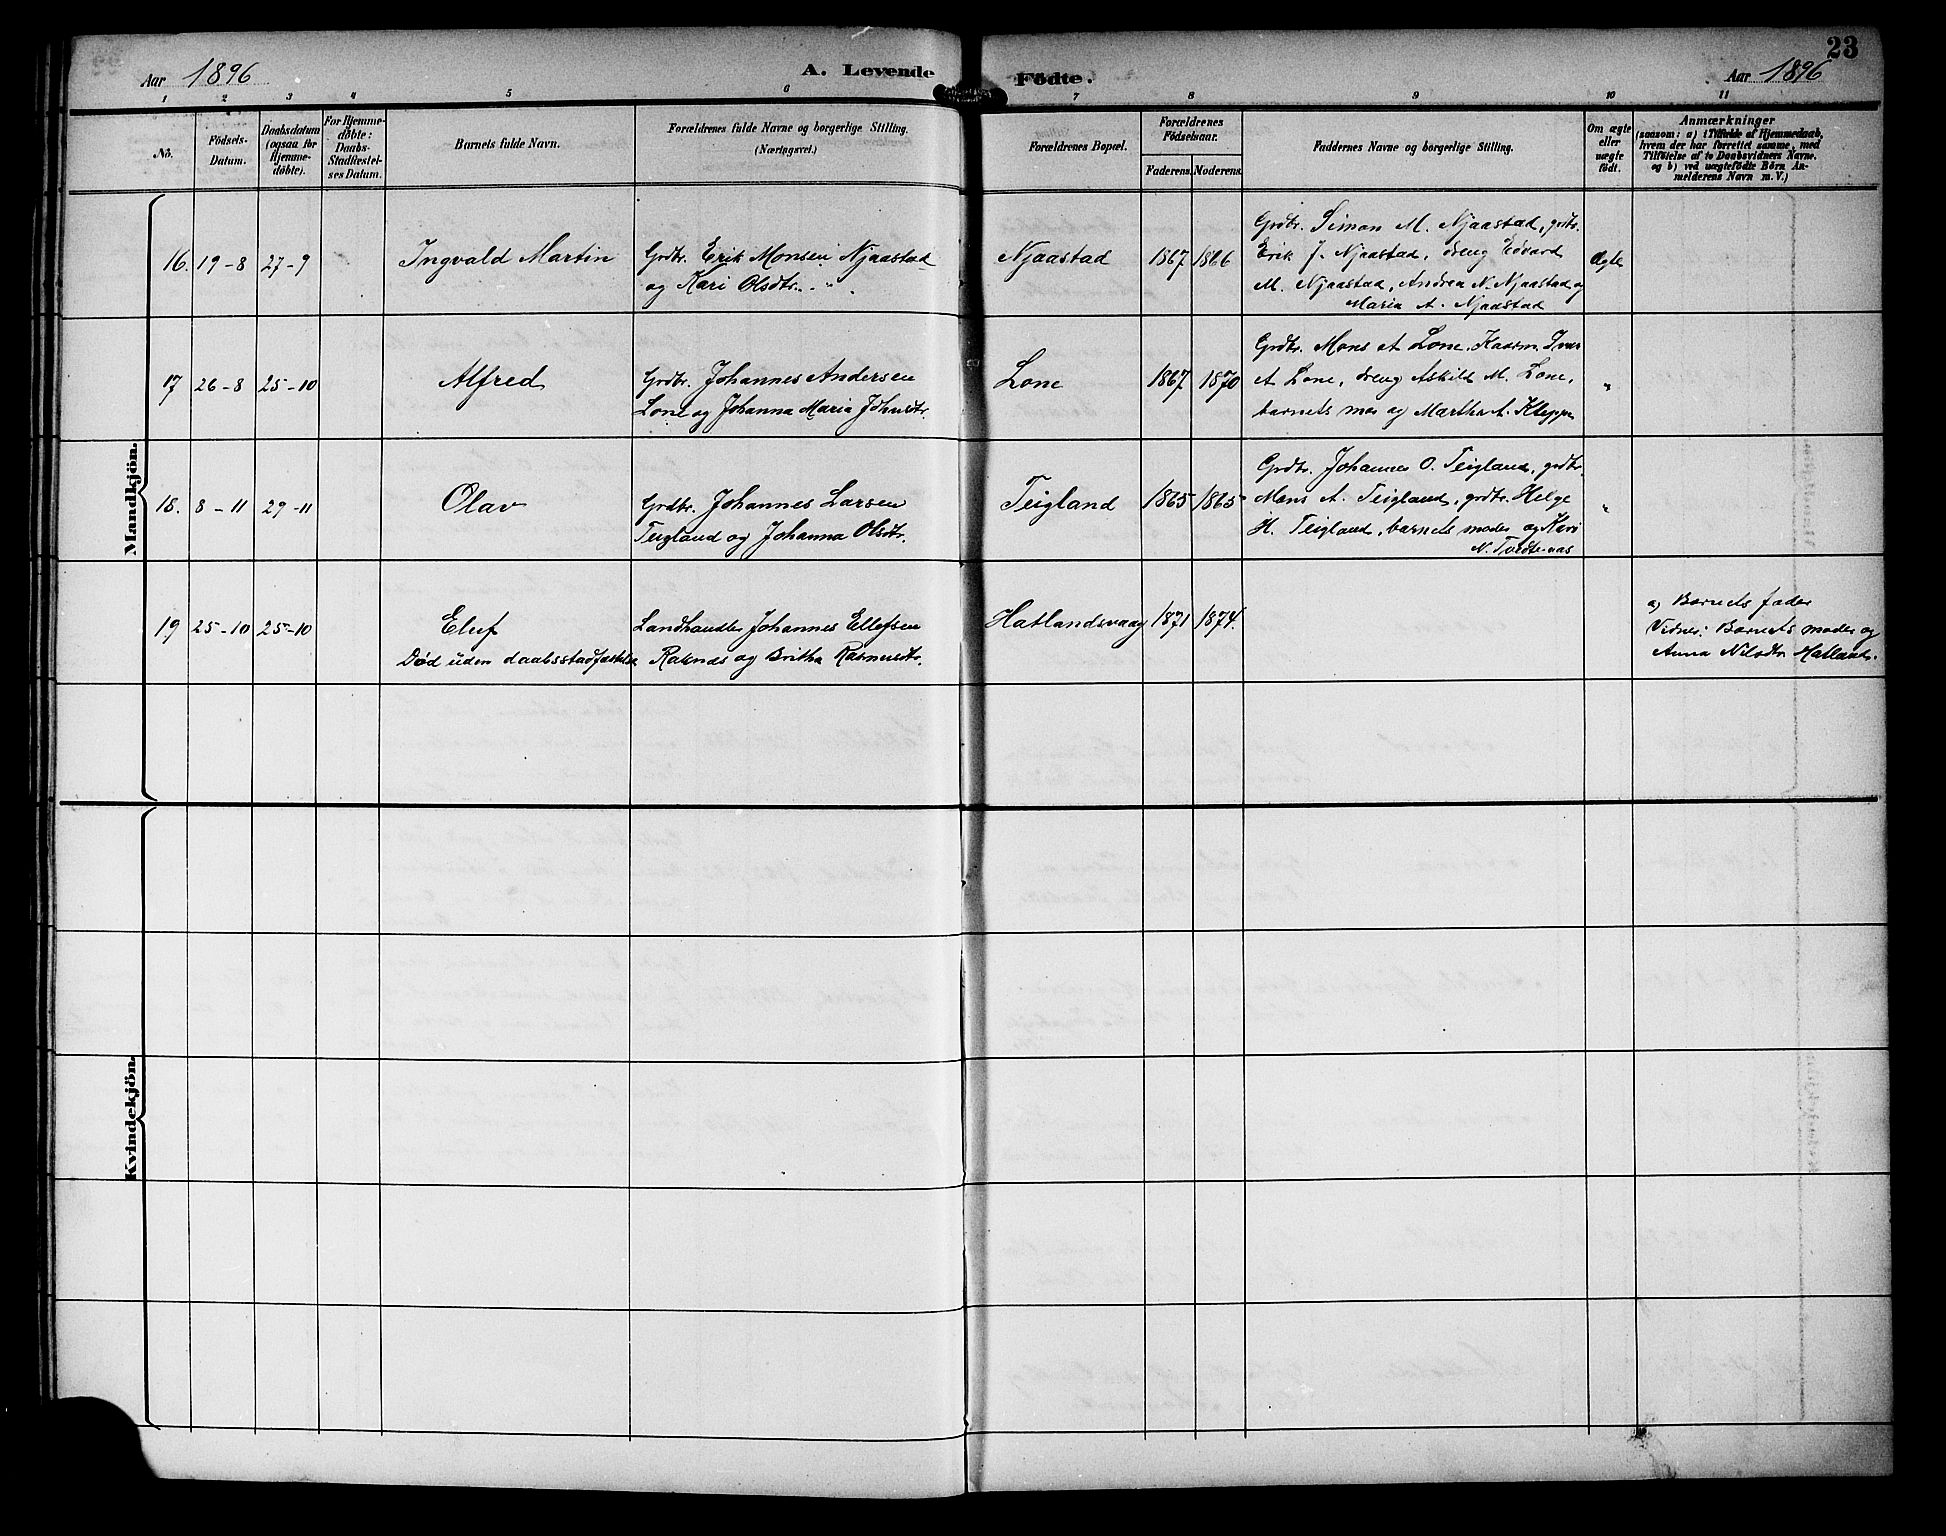 23
Aar 1896 A. Levende Födte. Aar 1896
1 2 3 4 5 6 7 8 9 10 11
No. Födsels-Datum. Daabsdatum (ogsaa for Hjemme-döbte). For Hjemme-döbte: Daabs-Stadfæstel-ses Datum. Barnets fulde Navn. Forældrenes fulde Navne og borgerlige Stilling. (Næringsvei.) Forældrenes Bopæl. Forældrenes Födselsaar. Faderens. Moderens. Faddernes Navne og borgerlige Stilling. Om ægte eller uægte födt. Anmærkninger
(saasom: a) i Tilfælde af Hjemmedaab,
hvem der har forrettet samme, med
Tilföielse af to Daabsvidners Navne.
og b) ved uægtefödte Börn An-
melderens Navn m. V.)
Mandkjön.
16. 19-8 27-9 Ingvald Martin Grdbr. Erik Monsen Njaastad
og Kari Olsdtr. „ Njaastad 1867 1866 Grdbr. Simon M. Njaastad, grdbr.
Erik J. Njaastad, dreng Edvard
M. Njaastad, Andrea N. Njaastad og
Maria A. Njaastad Ægte
17 26-8 25-10 Alfred Grdbr. Johannes Andersen
Lone og Johanna Maria Johnsdtr. Lone 1867 1870 Grdbr. Mons A Lone, Kaarm. Ivar
A Lone, dreng Askild M. Lone,
barnets mor og Martha A. Kleppe „
18. 8-11 29-11 Olav Grdbr. Johannes Larsen
Teigland og Johanna Olsdtr. Teigland 1865 1865 Grdbr. Johannes O. Teigland, grdbr.
Mons A. Teigland, grdbr. Helge
H. Teigland, barnets moder og Kari
N. Tvedte-aas „
19 25-10 25-10 Eluf
Död uden daabsstadfæstelse Landhandler Johannes Ellefsen
Raknæs og Britha Rasmusdtr. Hatlandsvaag 1871 1874. a) Barnets fader
Vidner: Barnets moder og
Anna Nilsdtr. Hatland.
Kvindekjön.